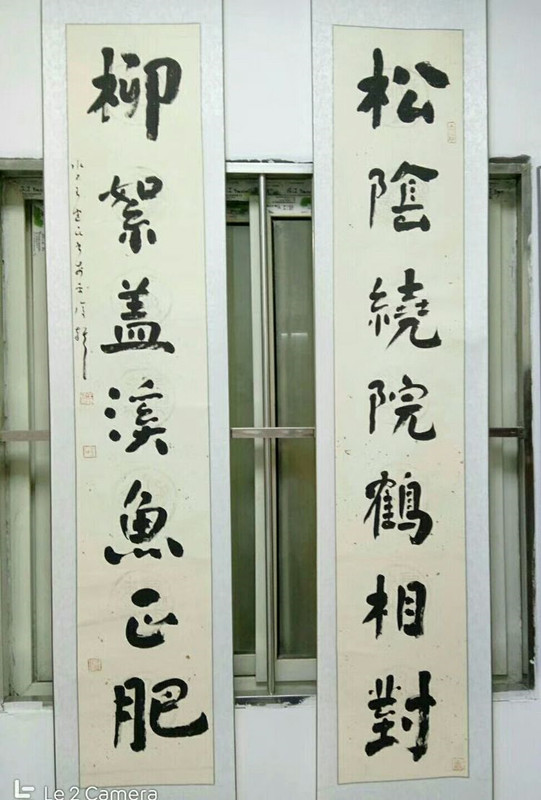 松陰繞院鶴相對
柳絮盖溪魚正肥
Le 2 Camera